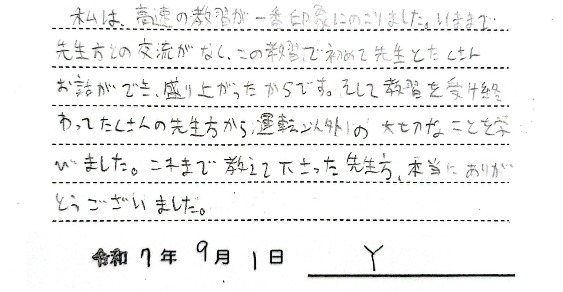 私は、高速の教習が一番印象にのこりました。いままで
先生方との交流がなく、この教習で初めて先生とたくさん
お話ができ、盛り上がったからです。そして教習を受け終
わってたくさんの先生方から運転以外の大切なことを学
びました。これまで教えて下さった先生方、本当にありが
とうございました。
令和7年9月1日 Y